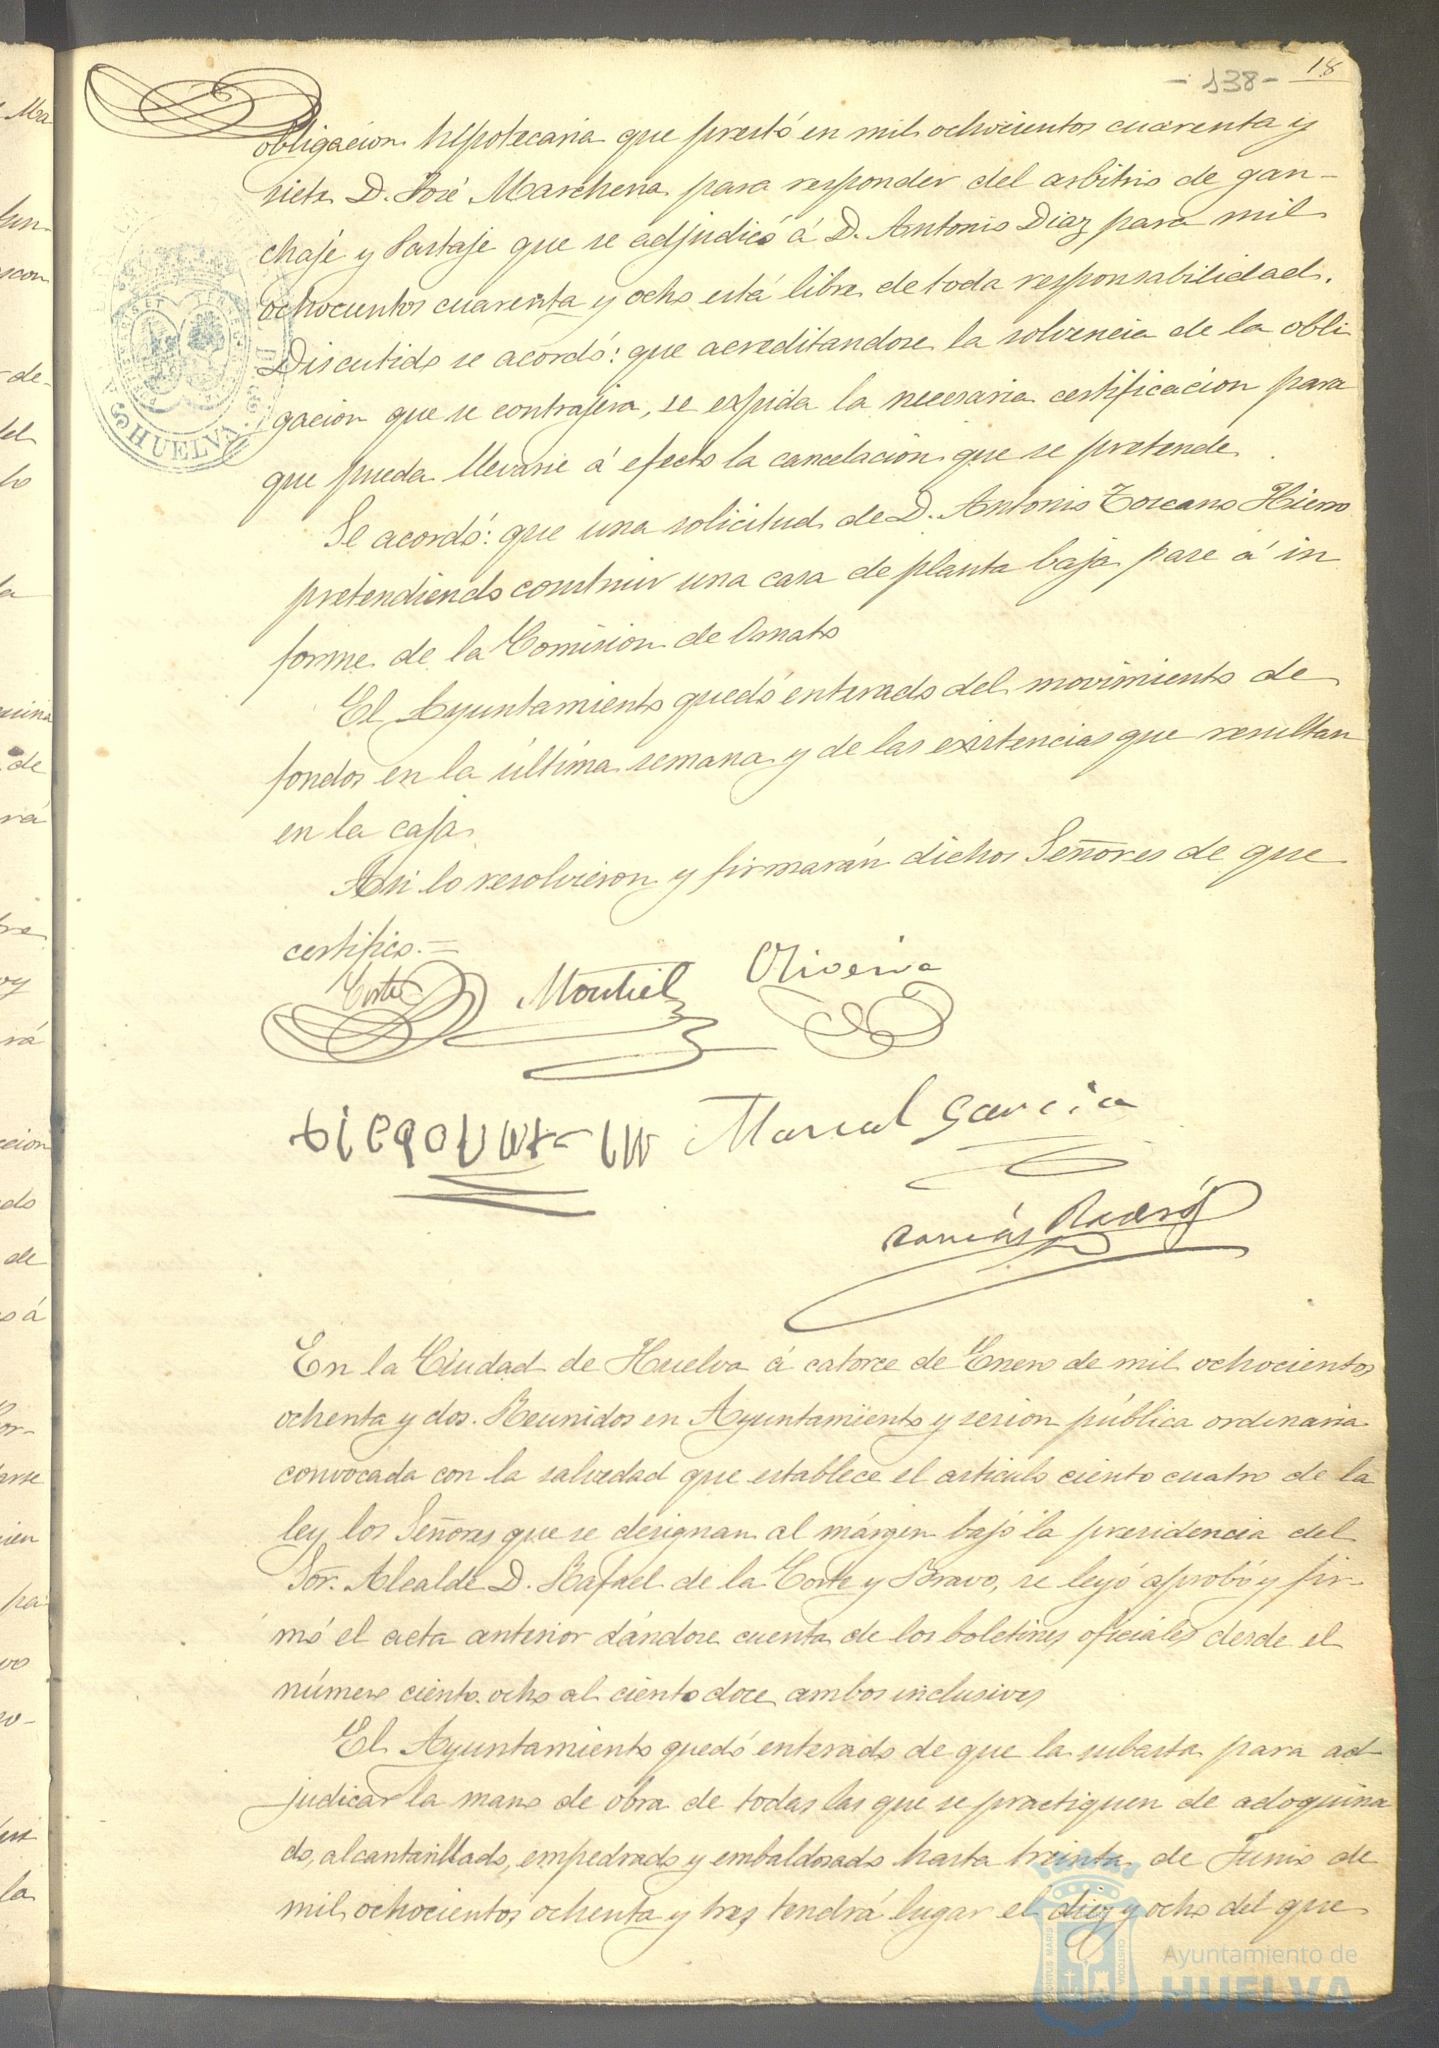 - 138 - 18
obligacion hipotecaria que prestó en mil ochocientos cuarenta y
siete D. José Marchena para responder del arbitrio de gan-
chaje y Partaje que se adjudicó á D. Antonio Diaz para mil
ochocientos cuarenta y ocho está libre de toda responsabilidad.
Discutido se acordó: que acreditandose la solvencia de la obli
gacion que se contrajera, se expida la necesaria certificacion para
que pueda llevarse á efecto la cancelacion que se pretende.
Se acordó: que una solicitud de D. Antonio Toscano Hierro
pretendiendo construir una casa de planta baja pase á in
forme de la Comision de Ornato
El Ayuntamiento quedó enterado del movimiento de
fondos en la última semana y de las existencias que resultan
en la caja.
Asi lo resolvieron y firmarán dichos Señores de que
certifico.=
Corte Montiel Oliveira
Marcal Garcia
En la Ciudad de Huelva á catorce de Enero de mil ochocientos
ochenta y dos. Reunidos en Ayuntamiento y sesion pública ordinaria
convocada con la salvedad que establece el articulo ciento cuatro de la
ley los Señores que se designan al márgen bajo la presidencia del
Sor. Alcalde D. Rafael de la Corte y Bravo, se leyó aprobó y fir-
mó el acta anterior dándose cuenta de los boletines oficiales desde el
número ciento ocho al ciento doce ambos inclusives
El Ayuntamiento quedó enterado de que la subasta para ad-
judicar la mano de obra de todas las que se practiquen de adoquina
do, alcantarillado, empedrado y embaldosado hasta treinta de Junio de
mil ochocientos ochenta y tres tendrá lugar el diez y ocho del que
HUELVA
Ayuntamiento de
HUELVA